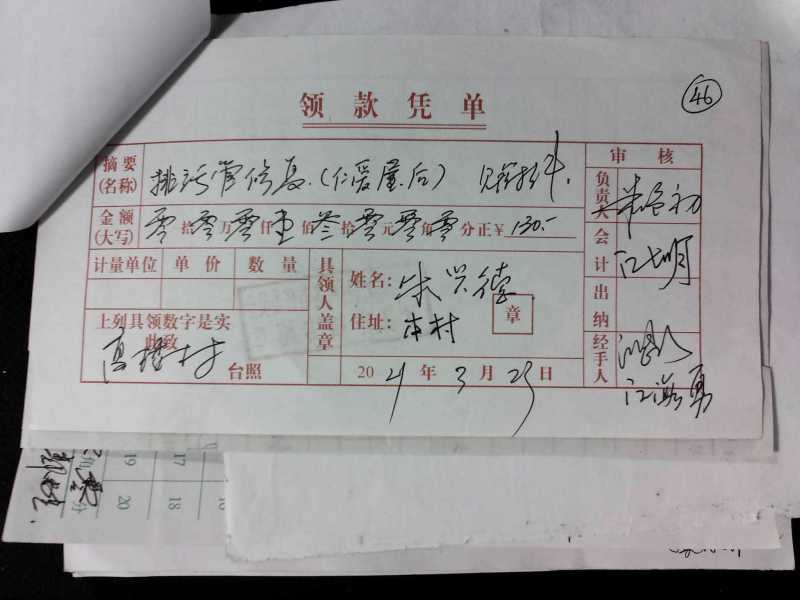 46
领款凭单
摘要(名称) 排污管修复.(仁爱屋后) 见附件.
审核
金额(大写) 零拾零万零仟壹佰叁拾零元零角零分正¥130.-
负责人
计量单位 单价 数量
具领人盖章
姓名: 朱兴德
章
住址: 本村
会计
上列具领数字是实
此致
高桥村 台照
2021年3月25日
出纳
经手人
19 17
20 18